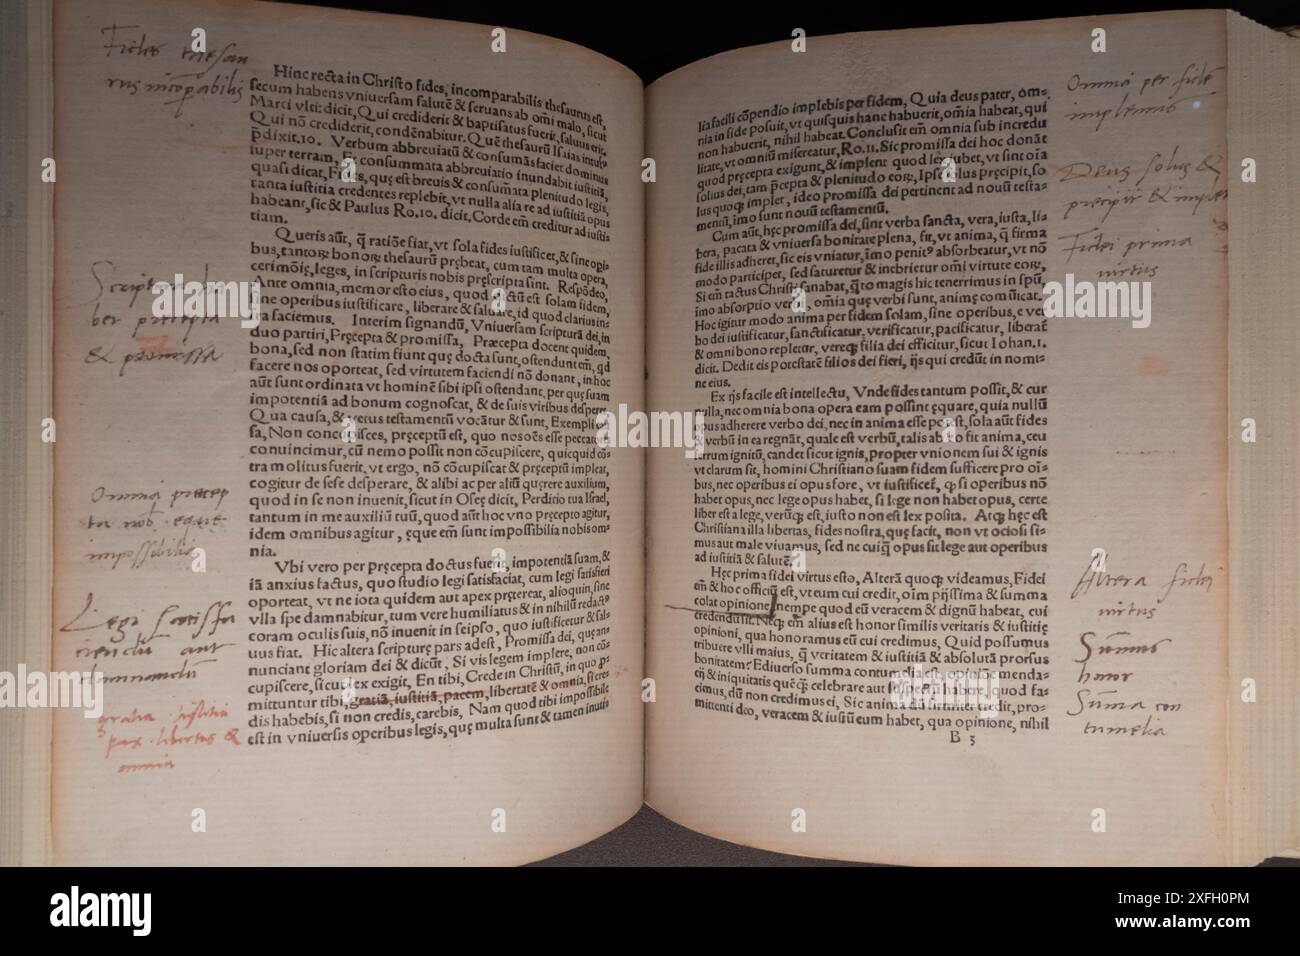 Fides thesau
rus incōparabilis
Hinc recta in Christo fides, incomparabilis thesaurus est,
secum habens vniuersam salutē & seruans ab omi malo, sicut
Marci vlti: dicit, Qui crediderit & baptisatus fuerit, saluus erit.
Qui nō crediderit, condēnabitur. Quē thesaurū Isaias intuitꝰ
p̄dixit.10. Verbum abbreuiatū & consumās faciet dominus
super terram, & consummata abbreuiatio inundabit iustitiā,
quasi dicat, Fides, quę est breuis & consum̄ata plenitudo legis,
tanta iustitia credentes replebit, vt nulla alia re ad iustitiā opus
habeant, sic & Paulus Ro.10. dicit, Corde em̄ creditur ad iusti-
tiam.
Queris aūt, q̄ ratiōe fiat, vt sola fides iustificet, & sine opi-
bus, tantoꝝ bonoꝝ thesaurū prębeat, cum tam multa opera,
cerimōię, leges, in scripturis nobis pręscripta sint. Respōdeo,
Ante omnia, memor esto eius, quod dictū est solam fidem,
sine operibus iustificare, liberare & saluare, id quod clarius in-
fra faciemus. Interim signandū, Vniuersam scripturā dei, in
duo partiri, Pręcepta & promissa, Præcepta docent quidem,
bona, sed non statim fiunt quę docta sunt, ostendunt em̄, qd
facere nos oporteat, sed virtutem faciendi nō donant, in hoc
aūt sunt ordinata vt hominē sibi ipsi ostendant, per quę suam
impotentiā ad bonum cognoscat, & de suis viribus desperet
Qua causa, & vetus testamentū vocātur & sunt, Exempli cau
sa, Non concupisces, pręceptū est, quo nos oēs esse peccatores
conuincimur, cū nemo possit non cōcupiscere, quicquid cō-
tra molitus fuerit, vt ergo, nō cōcupiscat & pręceptū impleat,
cogitur de sese desperare, & alibi ac per aliū quęrere auxilium,
quod in se non inuenit, sicut in Oseę dicit, Perditio tua Israel,
tantum in me auxiliū tuū, quod aūt hoc vno pręcepto agitur,
idem omnibus agitur, ęque em̄ sunt impossibilia nobis om-
nia.
Scriptura ha
ber precepta
& promissa
Omnia precep
ta nob. eque
impossibilia
Vbi vero per pręcepta doctus fuerit, impotentiā suam, &
iā anxius factus, quo studio legi satisfaciat, cum legi satisfieri
oporteat, vt ne iota quidem aut apex pręterea͏t, alioquin, sine
vlla spe damnabitur, tum vere humiliatus & in nihilū redactꝰ
coram oculis suis, nō inuenit in seipso, quo iustificetur & sal-
uus fiat. Hic altera scripturę pars adest, Promissa dei, quę an-
nunciant gloriam dei & dicūt, Si vis legem implere, non cō-
cupiscere, sicut lex exigit, En tibi, Crede in Christū, in quo p̄-
mittuntur tibi, gratiā, iustitiā, pacem, libertatē & omnia, si cres
dis habebis, si non credis, carebis, Nam quod tibi impossibile
est in vniuersis operibus legis, quę multa sunt & tamen inutia
Legi satisfa
ciendū aut
damnandū
gratia iustitia
pax libertas &
omnia
lia facili cōpendio implebis per fidem, Quia deus pater, om-
nia in fide posuit, vt quisquis hanc habuerit, omīa habeat, qui
non habuerit, nihil habeat. Conclusit em̄ omnia sub incredu
litate, vt omniū misereatur, Ro.11. Sic promissa dei hoc donāt
quod pręcepta exigunt, & implent quod lex iubet, vt sint oīa
solius dei, tam p̄cepta & plenitudo eoꝝ, Ipse solus pręcipit, so
lus quoqꝫ implet, ideo promissa dei pertinent ad nouū testa-
mentū, imo sunt nouū testamentū.
Cum aūt, hęc promissa dei, sint verba sancta, vera, iusta, li-
bera, pacata & vniuersa bonitate plena, fit, vt anima, q̄ firma
fide illis adheret, sic eis vniatur, īmo penitꝰ absorbeatur, vt nō
modo participet, sed saturetur & inebrietur omī virtute eoꝝ,
Si em̄ tactus Christi sanabat, q̄to magis hic tenerrimus in spū,
īmo absorptio verbi, omīa quę verbi sunt, animę com̄unicat,
Hoc igitur modo anima per fidem solam, sine operibus, e ver
bo dei iustificatur, sanctificatur, verificatur, pacificatur, liberat̄
& omni bono repletur, vereqꝫ filia dei efficitur, sicut Iohan.1.
dicit. Dedit eis potestatē filios dei fieri, ijs qui credūt in nomi-
ne eius.
Ex ijs facile est intellectu, Vnde fides tantum possit, & cur
nulla, nec omnia bona opera eam possint ęquare, quia nullū
opus adherere verbo dei, nec in anima esse potest, sola aūt fides
& verbū in ea regnāt, quale est verbū, talis ab eo fit anima, ceu
ferrum ignitū, candet sicut ignis, propter vnionem sui & ignis
vt clarum sit, homini Christiano suam fidem sufficere pro oī-
bus, nec operibus ei opus fore, vt iustificet̄, q̄ si operibus nō
habet opus, nec lege opus habet, si lege non habet opus, certe
liber est a lege, verūqꝫ est, iusto non est lex posita. Atqꝫ hęc est
Christiana illa libertas, fides nostra, quę facit, non vt ociosi si-
mus aut male viuamus, sed ne cuiq̄ opus sit lege aut operibus
ad iustitiā & salutē.
Hęc prima fidei virtus esto, Alterā quoqꝫ videamus, Fidei
em̄ & hoc officiū est, vt eum cui credit, oīm pijssima & summa
colat opinione, nempe quod eū veracem & dignū habeat, cui
credendū sit. Neqꝫ em̄ alius est honor similis veritatis & iustitię
opinioni, qua honoramus eū cui credimus, Quid possumus
tribuere vlli maius, q̄ veritatem & iustitiā & absolutā prorsus
bonitatem? Ediuerso summa contumelia est, opinionē menda-
cij & iniquitatis quę celebrare aut suspectū habere, quod fa-
cimus, dū non credimus ei, Sic anima dū firmiter credit, pro-
mittenti deo, veracem & iustū eum habet, qua opinione, nihil
B 3
Omnia per fidē
implemus
Deus solus &
precipit & implet
Fidei prima
virtus
Altera fidei
virtus
Sum̄us
honor
Sum̄a con
tumelia
alamy
Image ID: 2XFH0PM
www.alamy.com